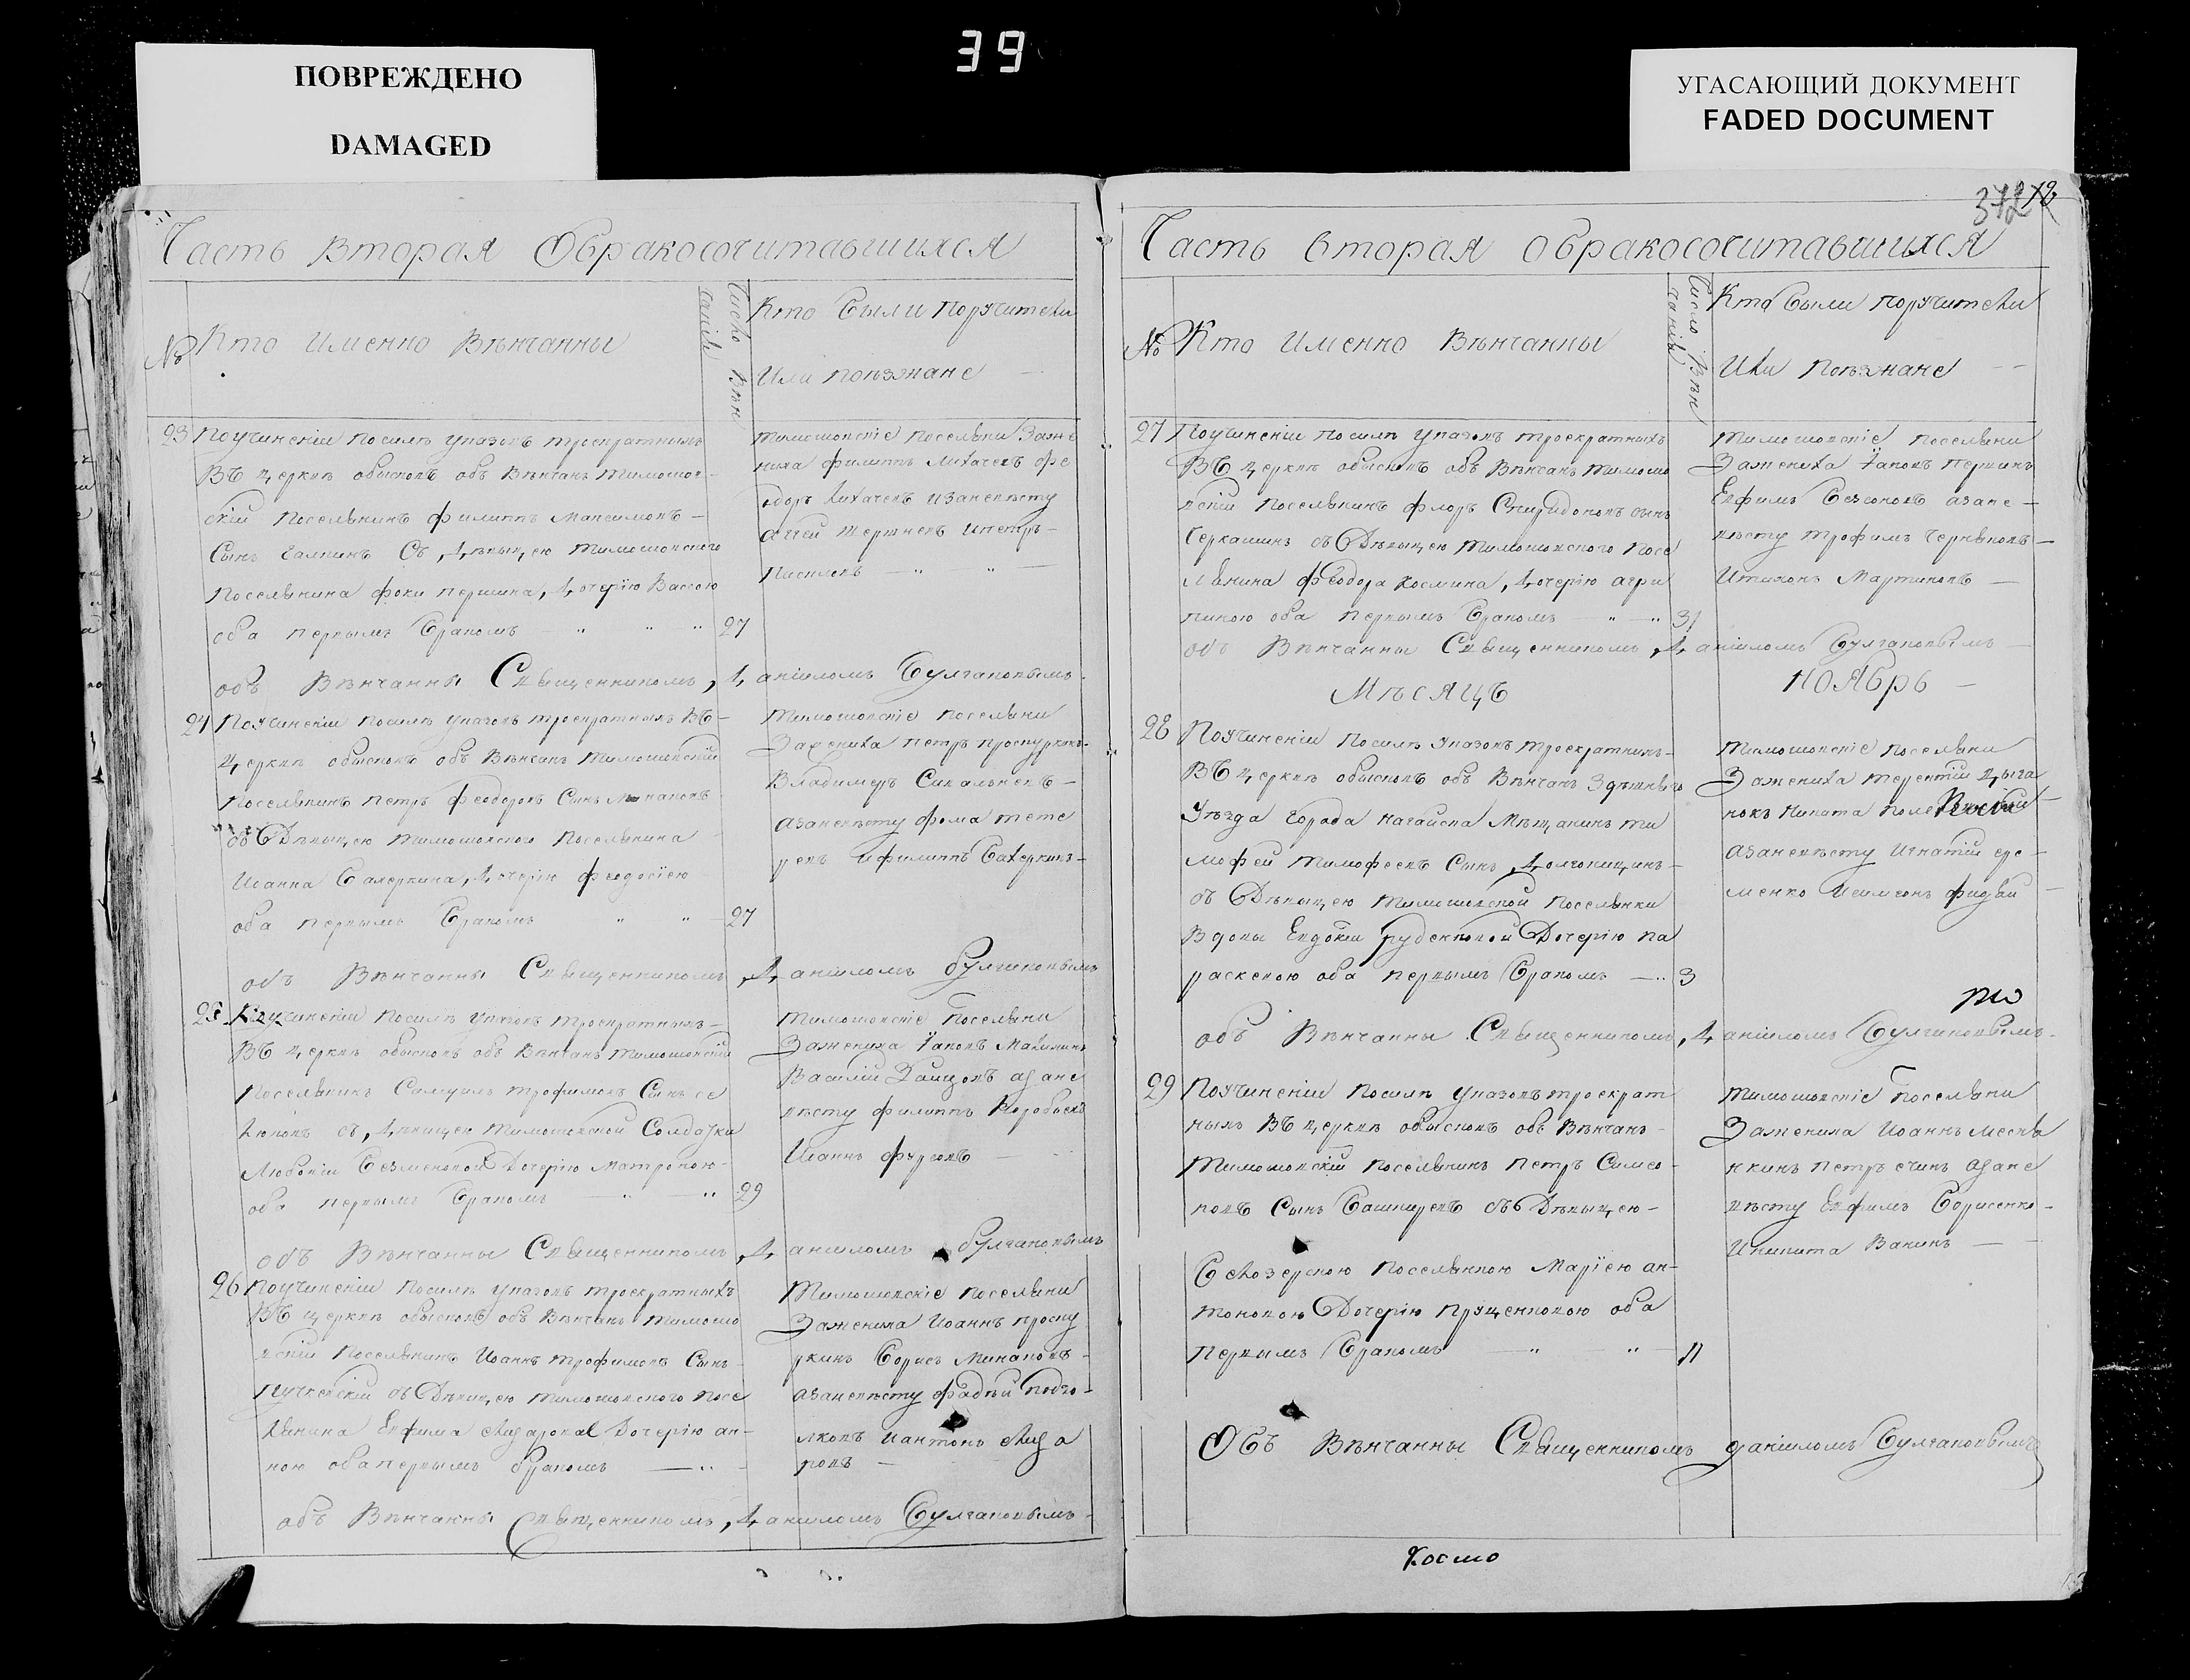 39
ПОВРЕЖДЕНО
DAMAGED
УГАСАЮЩИЙ ДОКУМЕНТ
FADED DOCUMENT
Часть Вторая Обракосочитавшихся
№
Кто Именно Вѣнчанны
Число Вѣн
чанiй
Кто были поручители
Или поѣзжане
23
По учинении по силѣ указовъ троекратныхъ
въ церквѣ обысковъ объ Вѣнчанъ Тимошов-
ский поселянинъ Филиппъ Максимовъ
Сынъ Галкинъ Съ Дѣвицею Тимошовского
поселянина Фоки Першина Дочерїю Вассою
оба первымъ бракомъ
27
Тимошовскїе поселяни За же
ниха Филиппъ Лихачевъ Фе
одоръ Лихачевъ и За невѣсту
и Петръ
Киселевъ
объ Вѣнчанны Священникомъ Данииломъ Булгаковымъ
24
По учинении по силѣ указовъ троекратныхъ въ
церквѣ обысковъ объ Вѣнчанъ Тимошовский
поселянинъ Петръ Феодоровъ Сынъ Минаковъ
съ Дѣвицею Тимошовского поселянина
Иоанна Бахеркина Дочерїю Феодосїею
оба первымъ бракомъ
27
Тимошовскїе поселяни
За жениха Петръ Проскуркинъ
Владимеръ
а за невѣсту Фома Тете
ревъ и Филиппъ Бахеркинъ
объ Вѣнчанны Священникомъ Данииломъ Булгаковымъ
25
По учинении по силѣ указовъ троекратныхъ
въ церквѣ обысковъ объ Вѣнчанъ Тимошовский
поселянинъ Самуилъ Трофимовъ Сынъ Се
люковъ съ Дѣвицею Тимошовской Солдатки
Любовии Безменовой Дочерїю Матроною
оба первымъ бракомъ
29
Тимошовскїе поселяни
За жениха Їаковъ Махининъ
Василий Зайцовъ а за не
вѣсту Филиппъ Коробьевъ
Иоаннъ Фурсовъ
объ Вѣнчанны Священникомъ Данииломъ Булгаковымъ
26
По учинении по силѣ указовъ троекратныхъ
въ церквѣ обысковъ объ Вѣнчанъ Тимошо
вский поселянинъ Иоаннъ Трофимовъ Сынъ
съ Дѣвицею Тимошовского посе
лянина Евфима Дочерїю Ан
ною оба первымъ бракомъ
Тимошовскїе поселяни
За жениха Иоаннъ Проску
ркинъ Борисъ Минаковъ
а за невѣсту Фадѣй Подго
лковъ и Антонъ
ровъ
объ Вѣнчанны Священникомъ Данииломъ Булгаковымъ
372
Часть вторая обракосочитавшихся
№
Кто Именно Вѣнчанны
Число Вѣн
чанiй
Кто были поручители
Или поѣзжане
27
По учинении по силѣ указовъ троекратныхъ
въ церквѣ обысковъ объ Вѣнчанъ Тимошо
вский поселянинъ Флоръ Спиридоновъ сынъ
Черкашинъ съ Дѣвицею Тимошовского посе
лянина Феодора Космина Дочерїю Агри
пиною оба первымъ бракомъ
31
Тимошовскїе поселяни
За жениха Їаковъ Першинъ
Евфимъ Безсоновъ а за не
вѣсту Трофимъ Черняковъ
и Тихонъ Мартиновъ
объ Вѣнчанны Священникомъ Данииломъ Булгаковымъ
Мѣсяцъ Ноябрь
28
По учинении по силѣ указовъ троекратныхъ
въ церквѣ обысковъ объ Вѣнчанъ Здѣшнѣго
уѣзда города Нагайска Мѣщанинъ Ти
мофей Тимофеевъ Сынъ Долгопицинъ
съ Дѣвицею Тимошовской поселянки
Вдовы Евдокии Руденковой Дочерїю Па
раскевою оба первымъ бракомъ
3
Тимошовскїе поселяни
За жениха Терентий Цыга
нокъ Никита
а за невѣсту Игнатий Ере
менко и Симеонъ
рю
объ Вѣнчанны Священникомъ Данииломъ Булгаковымъ
29
По учинении по силѣ указовъ троекрат
ныхъ въ церквѣ обысковъ объ Вѣнчанъ
Тимошовский поселянинъ Петръ Симео
новъ Сынъ Башкиревъ съ Дѣвицею
Белозерскою поселянкою Марїею Ан-
тоновою Дочерїю Пруценковою оба
первымъ бракомъ
11
Тимошовскїе поселяни
За жениха Иоаннъ
нкинъ Петръ а за не
вѣсту Евфимъ Борисенко
и Никита Ванинъ
Объ Вѣнчанны Священникомъ Данииломъ Булгаковымъ
Космо